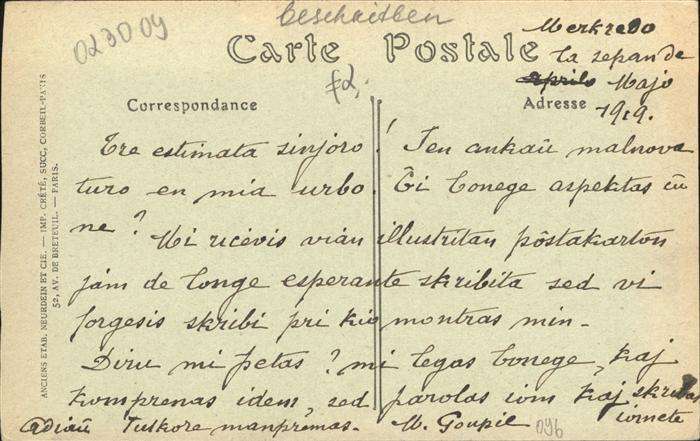 beschreiben
023009
Carte Postale
Merkredo
la sepan de
Aprilo Majo
1919.
Correspondance
Adresse
Tre estimata sinjoro! Jen ankaŭ malnova
turo en mia urbo. Ĝi bonege aspektas ĉu
ne?
Mi ricevis vian illustritan poŝtakarton
jam de longe esperante skribita sed vi
forgesis skribi pri kio montras min.
Diru mi petas? mi legas bonege, kaj
komprenas idem, sed parolas iom kaj skribas
iomete
Adiaŭ Tutkore manpremas. M. Goupil
096
ANCIENS ETAB. NEURDEIN ET CIE. — IMP. CRÉTÉ, SUCC, CORBEIL-PARIS
52, AV. DE BRETEUIL. — PARIS.